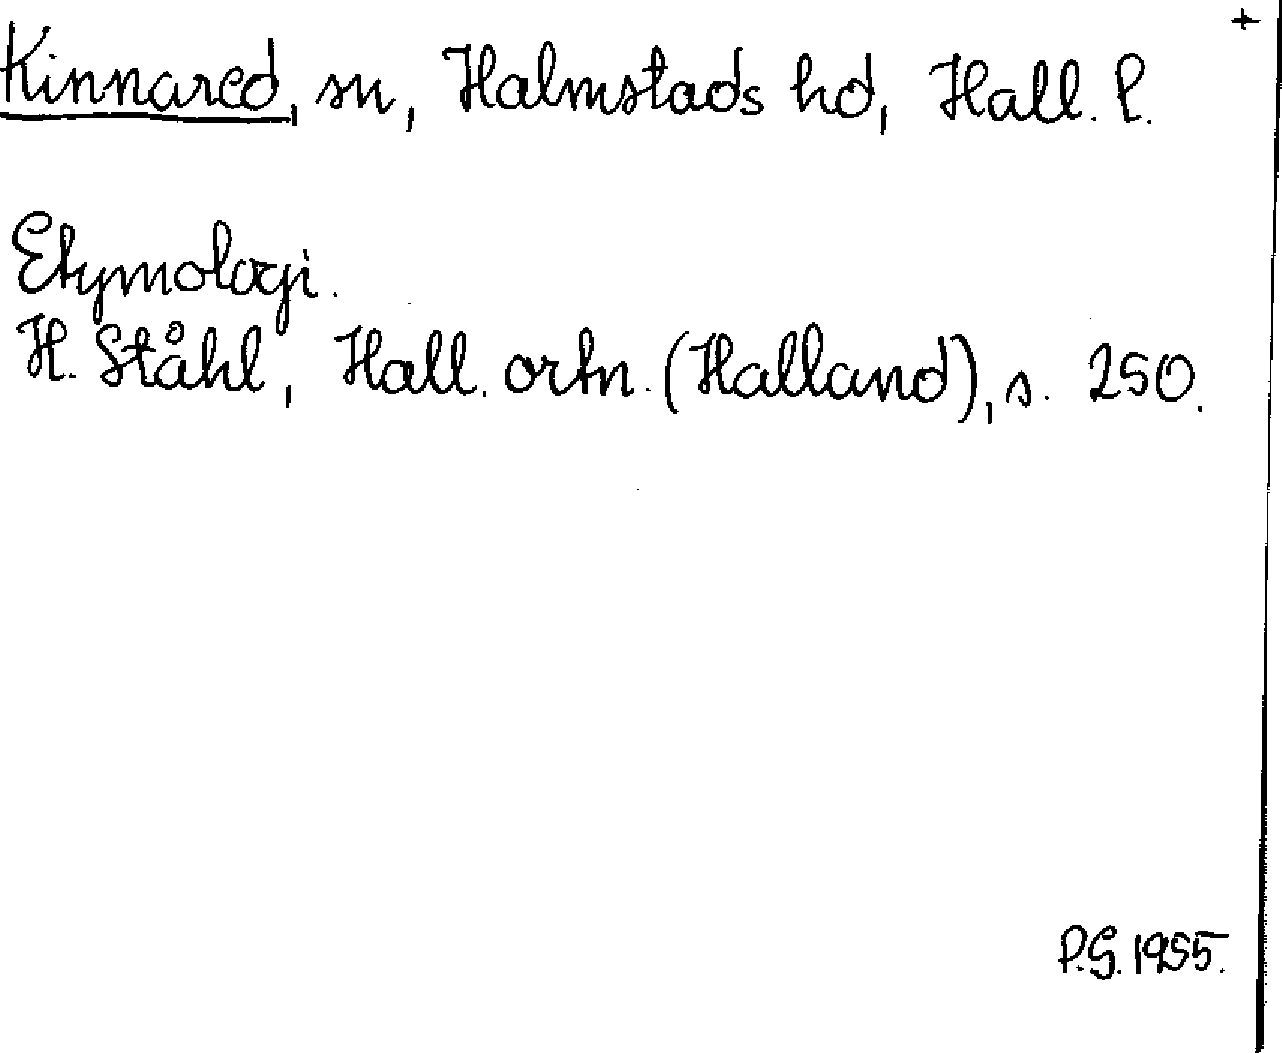 +
Kinnared, sn, Halmstads hd, Hall. l.
Etymologi.
H. Ståhl, Hall. ortn. (Halland), s. 250.
P.G. 1955.